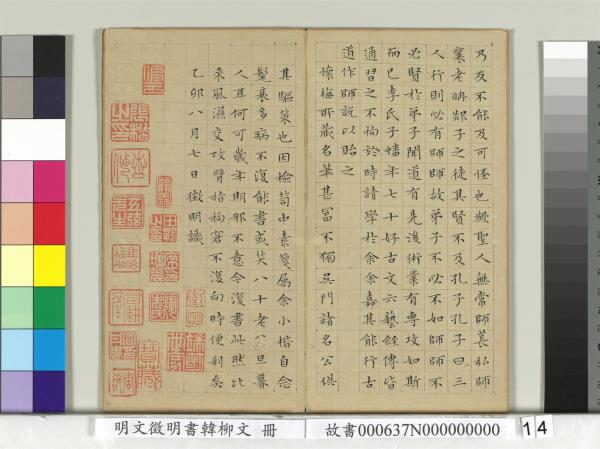 乃反不能及可怪也歟聖人無常師萇弘師
襄老聃郯子之徒其賢不及孔子孔子曰三
人行則必有師師故弟子不必不如師師不
必賢於弟子聞道有先後術業有專攻如斯
而已李氏子蟠年七十好古文六藝經傳皆
通習之不拘於時請學於余余嘉其能行古
道作師說以貽之
懷梅所藏名筆甚富不獨吳門諸名公供
其驅策也因撿笥中素箋屬余小楷自念
髦衰多病不復能書或笑八十老公旦暮
人耳何可歲年期邪不意今復書此然比
來風濕交攻臂指拘窘不復向時便利矣
乙卯八月七日徵明識
明文徵明書韓柳文 冊
故書000637N000000000
14